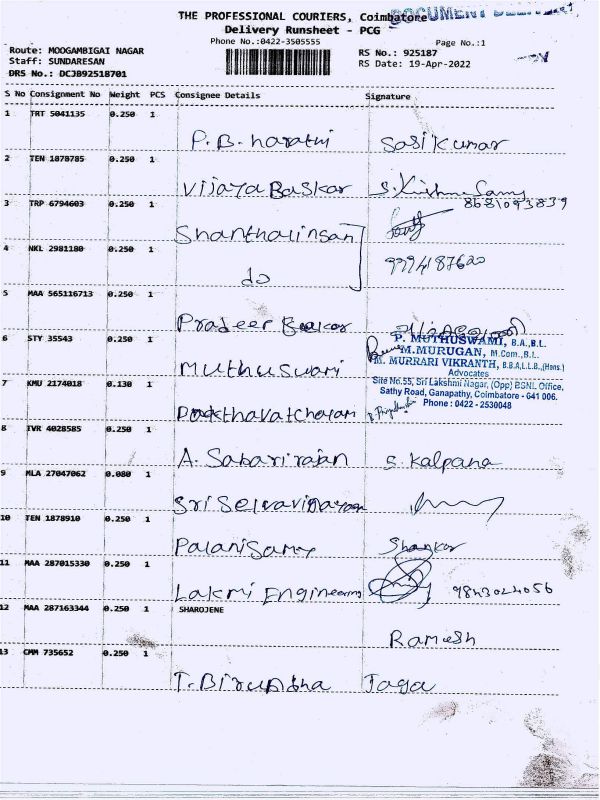 THE PROFESSIONAL COURIERS, Coimbatore
Delivery Runsheet - PCG
Phone No.:0422-3505555
Page No.:1
Route: MOOGAMBIGAI NAGAR
Staff: SUNDARESAN
DRS No.: DCJB92518701
RS No.: 925187
RS Date: 19-Apr-2022
S No Consignment No Weight PCS Consignee Details Signature
1 TRT 5041135 0.250 1
P. B. harathi Sasikumar
2 TEN 1878785 0.250 1
Vijaya Baskar S. Krishna Samy
8681093839
3 TRP 6794603 0.250 1
Shanthalinsan
4 NKL 2981180 0.250 1
9994187620
do
5 MAA 565116713 0.250 1
Pradeer
6 STY 35543 0.250 1
P. MUTHUSWAMI, B.A.,B.L.
M.MURUGAN, M.Com.,B.L.
M. MURRARI VIKRANTH, B.B.A.L.L.B.,(Hons.)
Advocates
Muthuswari
7 KMU 2174018 0.130 1
Site No.55, Sri Lakshmi Nagar, (Opp) BSNL Office,
Sathy Road, Ganapathy, Coimbatore - 641 006.
Phone : 0422 - 2530048
8 IVR 4028585 0.250 1
A. Sabarirajan S. Kalpana
9 MLA 27047062 0.080 1
Sri Selvavinayaga
10 TEN 1878910 0.250 1
Palanisamy Shankar
11 MAA 287015330 0.250 1
Lakmi Engineering 9843024056
12 MAA 287163344 0.250 1 SHAROJENE
Ramesh
13 CMM 735652 0.250 1
T. Birundha Jaga